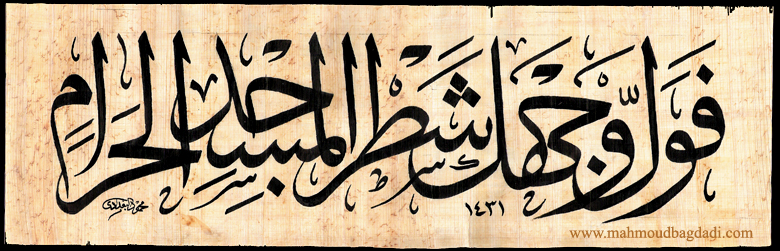 فَوَلِّ وَجْهَكَ شَطْرَ الْمَسْجِدِ الْحَرَامِ
١٤٣١
محمود البغدادي
www.mahmoudbagdadi.com